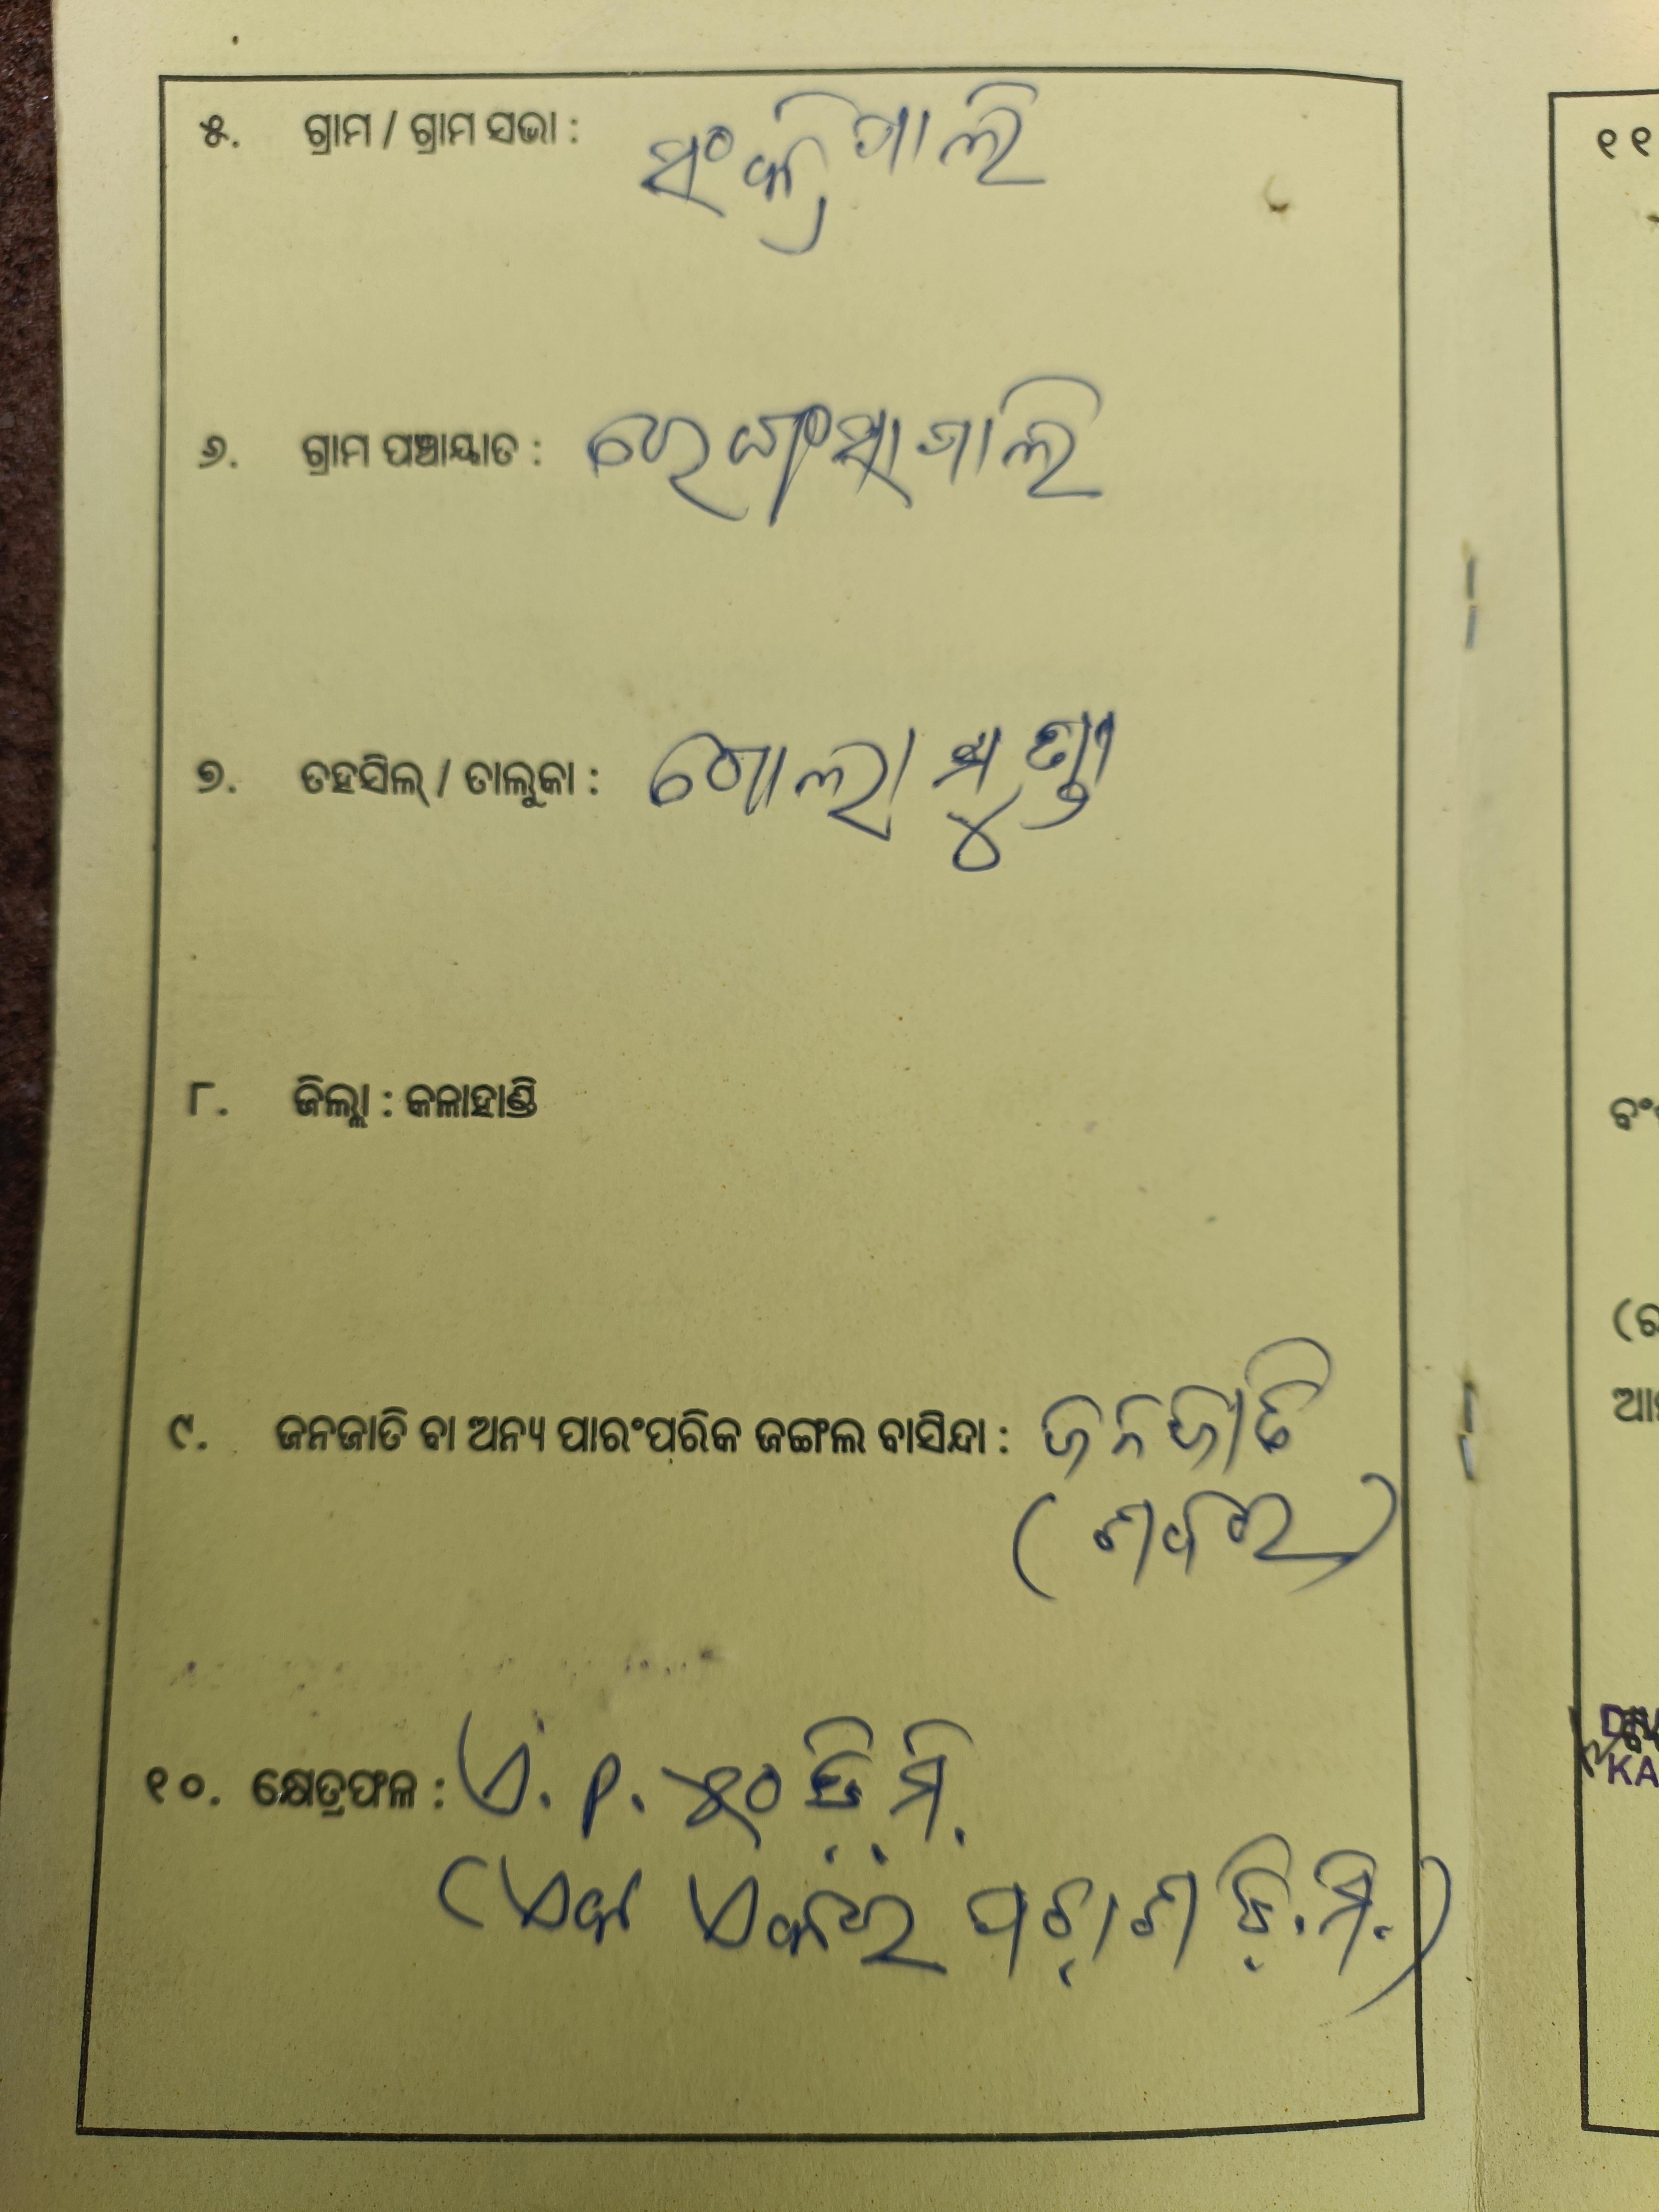 ୫. ଗ୍ରାମ / ଗ୍ରାମ ସଭା : ସଂକ୍ରିପାଲି
୬. ଗ୍ରାମ ପଞ୍ଚାୟାତ :
୭. ତହସିଲ୍ / ତାଲୁକା : ଗୋଲାମୁଣ୍ଡା
୮. ଜିଲ୍ଲା : କଳାହାଣ୍ଡି
୯. ଜନଜାତି ବା ଅନ୍ୟ ପାରଂପରିକ ଜଙ୍ଗଲ ବାସିନ୍ଦା : ଜନଜାତି
(ଶବର)
୧୦. କ୍ଷେତ୍ରଫଳ : ଏ. ୧. ୫୦ ଡି.ମି.
(ଏକ ଏକର ପଚାଶ ଡି.ମି.)
୧୧
KA